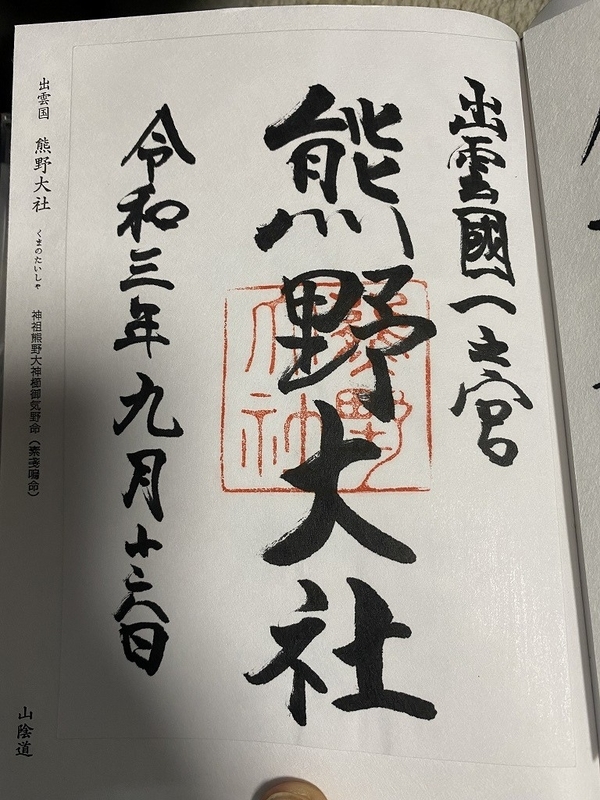 出雲國一之宮
熊野大社
令和三年九月十六日
出雲国 熊野大社 くまのたいしゃ 神祖熊野大神櫛御気野命(素戔嗚命)
山陰道